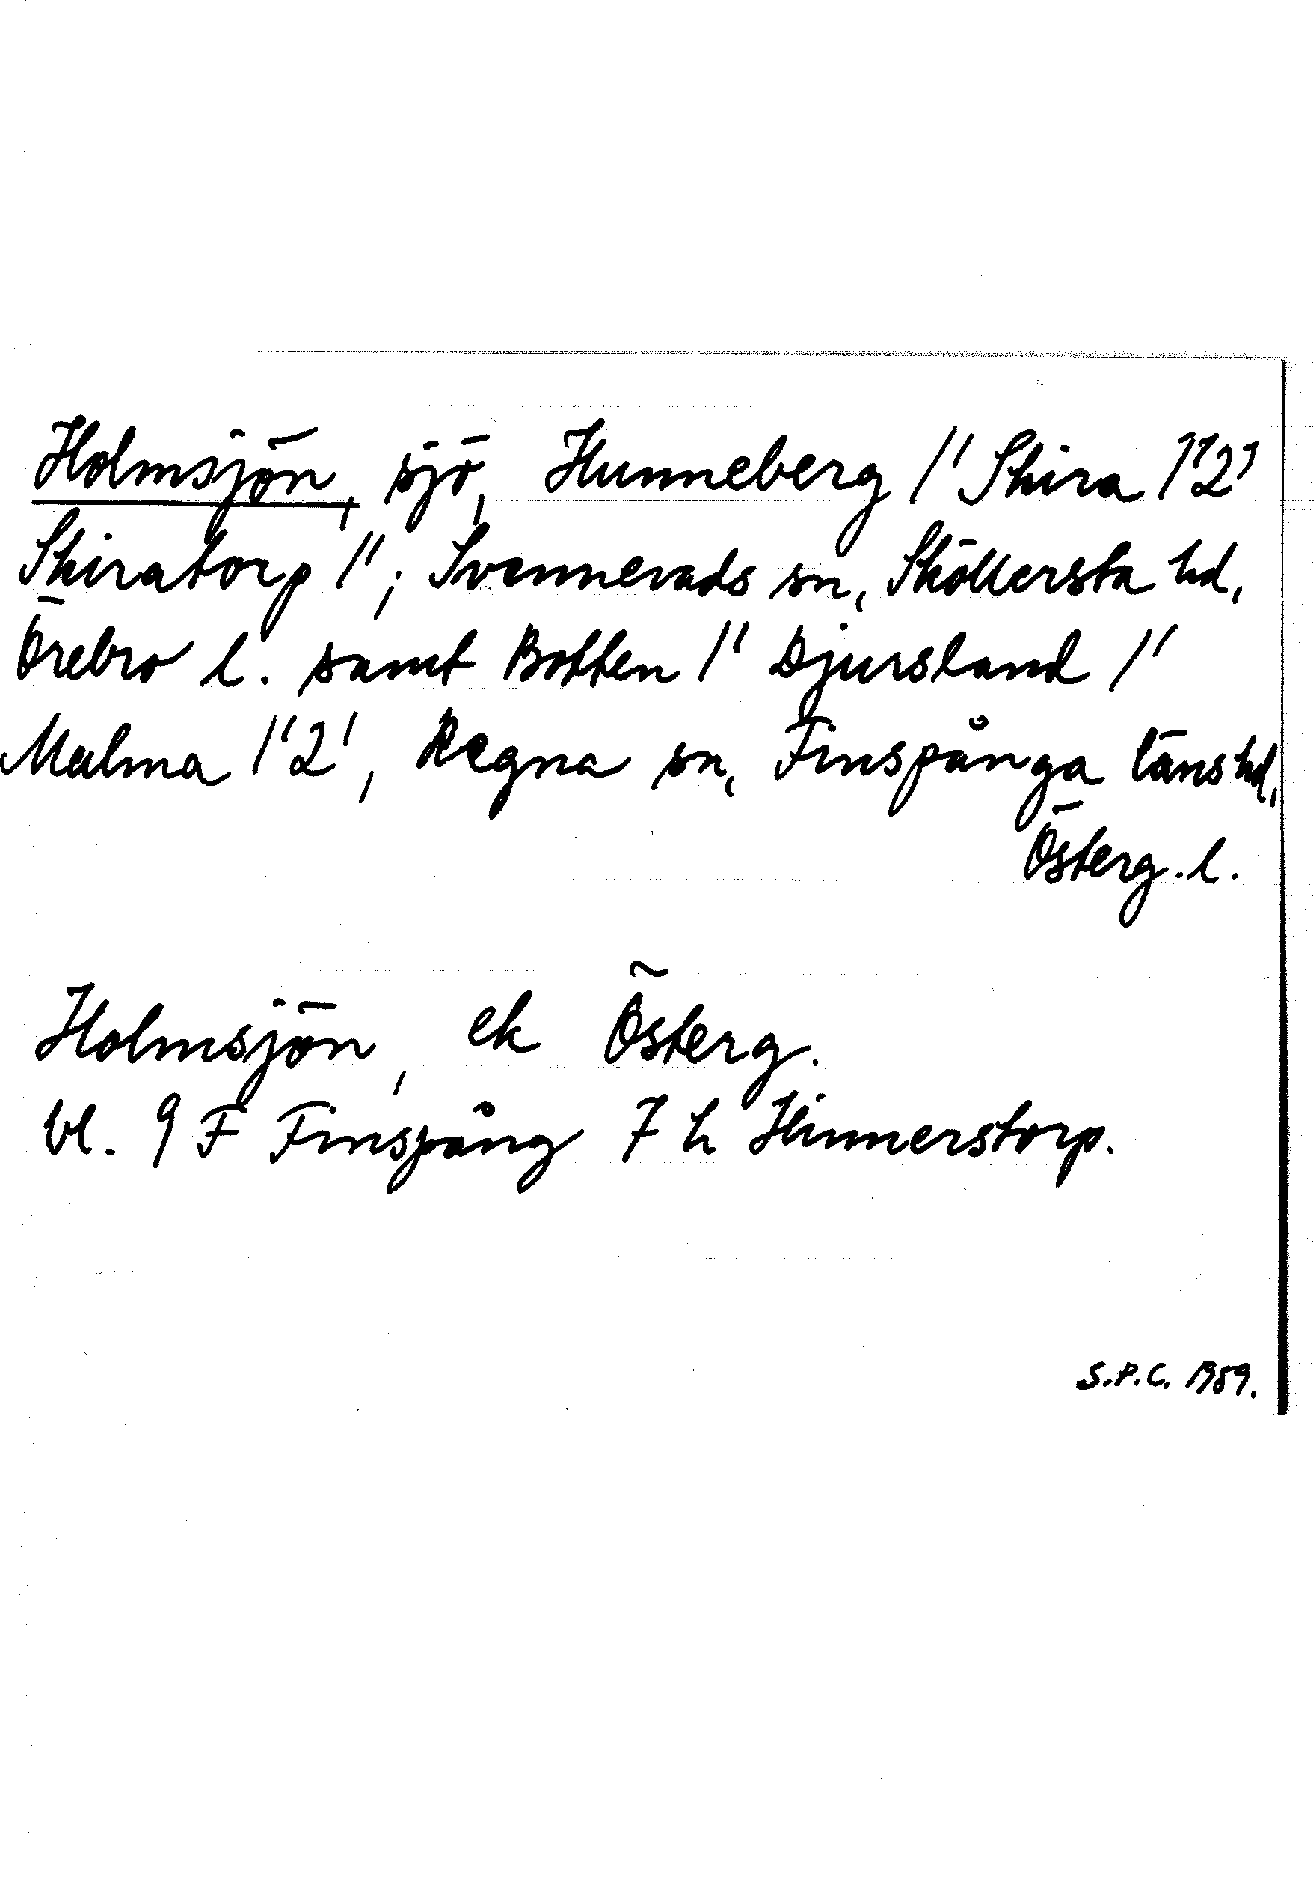 Holmsjön, sjö, Hunneberg 1' Skira 1'2'
Skiratorp 1'; Svennevads sn, Sköllersta hd,
Örebro l. samt Botten 1' Djursland 1'
Malma 1'2', Regna sn, Finspånga läns hd,
Österg. l.
Holmsjön, ek Österg.
bl. 9 F Finspång 7 h Hinnerstorp.
S.P.C. 1989.